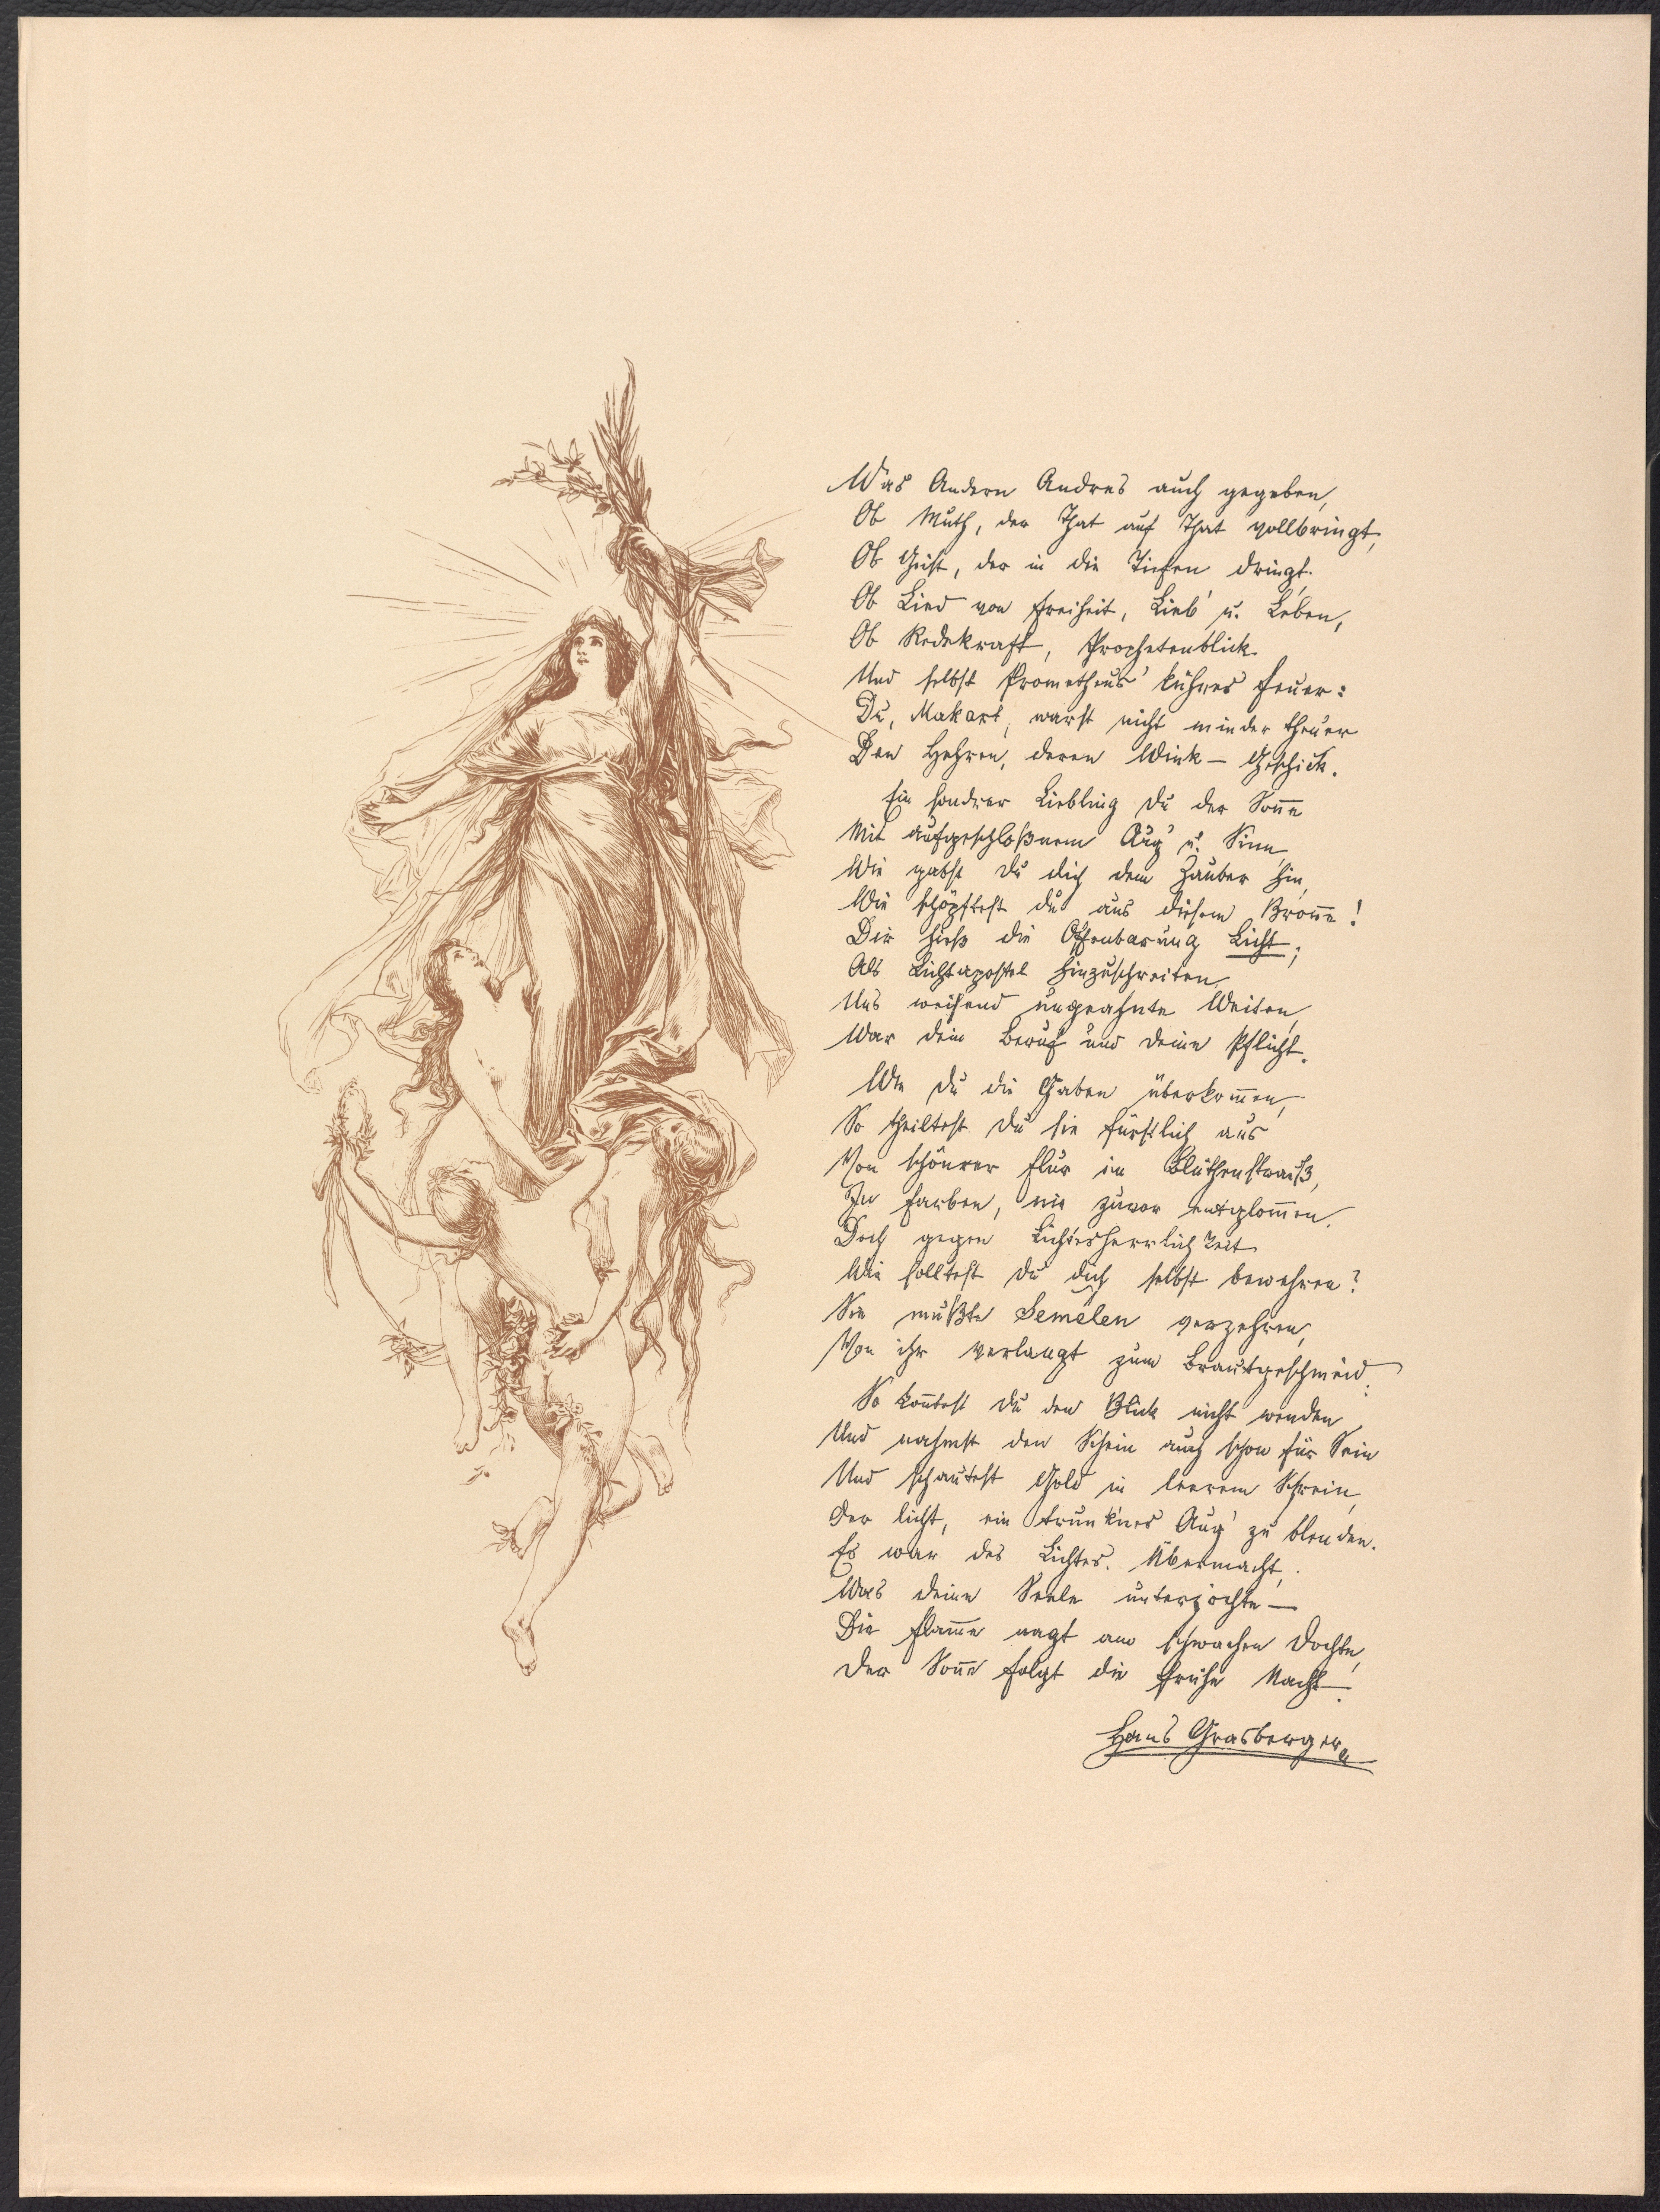 Was Andern Andres auch gegeben,
Ob Muth, der That auf That vollbringt,
Ob Geist, der in die Tiefen dringt.
Ob Lied von Freiheit, Lieb' u. Leben,
Ob Redekraft, Prophetenblick
Und selbst Prometheus' kühnes Feuer:
Du, Makart, warst nicht minder theuer
Den Hehren, deren Wink – Geschick.
Ein sondrer Liebling du der Son̄e
Mit aufgeschloßnem Aug' u. Sinn,
Wie gabst du dich dem Zauber hin,
Wie schöpftest du aus diesem Bron̄e!
Dir hieß die Offenbarung Licht;
Als Lichtapostel hinzuschreiten,
Uns weisend ungeahnte Weiten,
War dein Beruf und deine Pflicht.
Wie du die Gaben überkom̄en,
So theiltest du sie fürstlich aus
Von schönrer Flur im Blüthenstrauß,
In Farben, nie zuvor entglom̄en.
Doch gegen Lichtesherrlichkeit
Wie solltest du dich selbst bewehren?
Sie mußte Semelen verzehren,
Von ihr verlangt zum Brautgeschmeid.
So kon̄test du den Blick nicht wenden
Und nahmst den Schein auch schon für Sein
Und schautest Gold in leerem Schrein,
Der licht, ein trunk'nes Aug' zu blenden.
Es war des Lichtes Übermacht,
Was deine Seele unterjochte –
Die Flam̄e nagt am schwachen Dochte,
Der Son̄e folgt die frühe Nacht.
Hans Grasberger